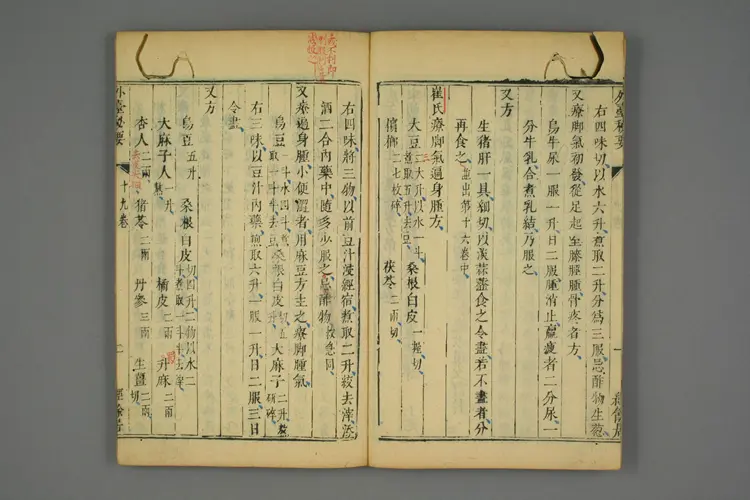 右四味切以水六升煮取二升分爲三服忌酢物生葱
又療脚氣初發從足起至膝脛腫骨疼者方
烏牛尿一服一升日二服腫消止羸瘦者二分尿一
分牛乳合煮乳結乃服之
又方
生猪肝一具細切以淡蒜虀食之令盡若不盡者分
再食之並出第十六卷中
崔氏療脚氣遍身腫方
大豆三大升以水一斗煮取五升去豆 桑根白皮一握切
檳榔二七枚碎 茯苓二兩切
右四味將三物以前豆汁浸經宿煮取二升絞去滓添
酒二合內藥中隨多少服之忌酢物
又療遍身腫小便澀者用麻豆方主之療脚腫氣
烏豆一斗水四斗煮取一斗半去豆 桑根白皮切五升 大麻子二升熬研碎
右三味以豆汁內藥煎取六升一服一升日二服三日
令盡
又方
烏豆五升 桑根白皮切四升二物以水二斗煮取一斗半去滓
大麻子人一升熬 橘皮二兩 升麻二兩
杏人二兩 猪苓二兩 丹參三兩 生薑二兩切
外臺秘要
十九卷
二
經餘居
外臺秘要
一